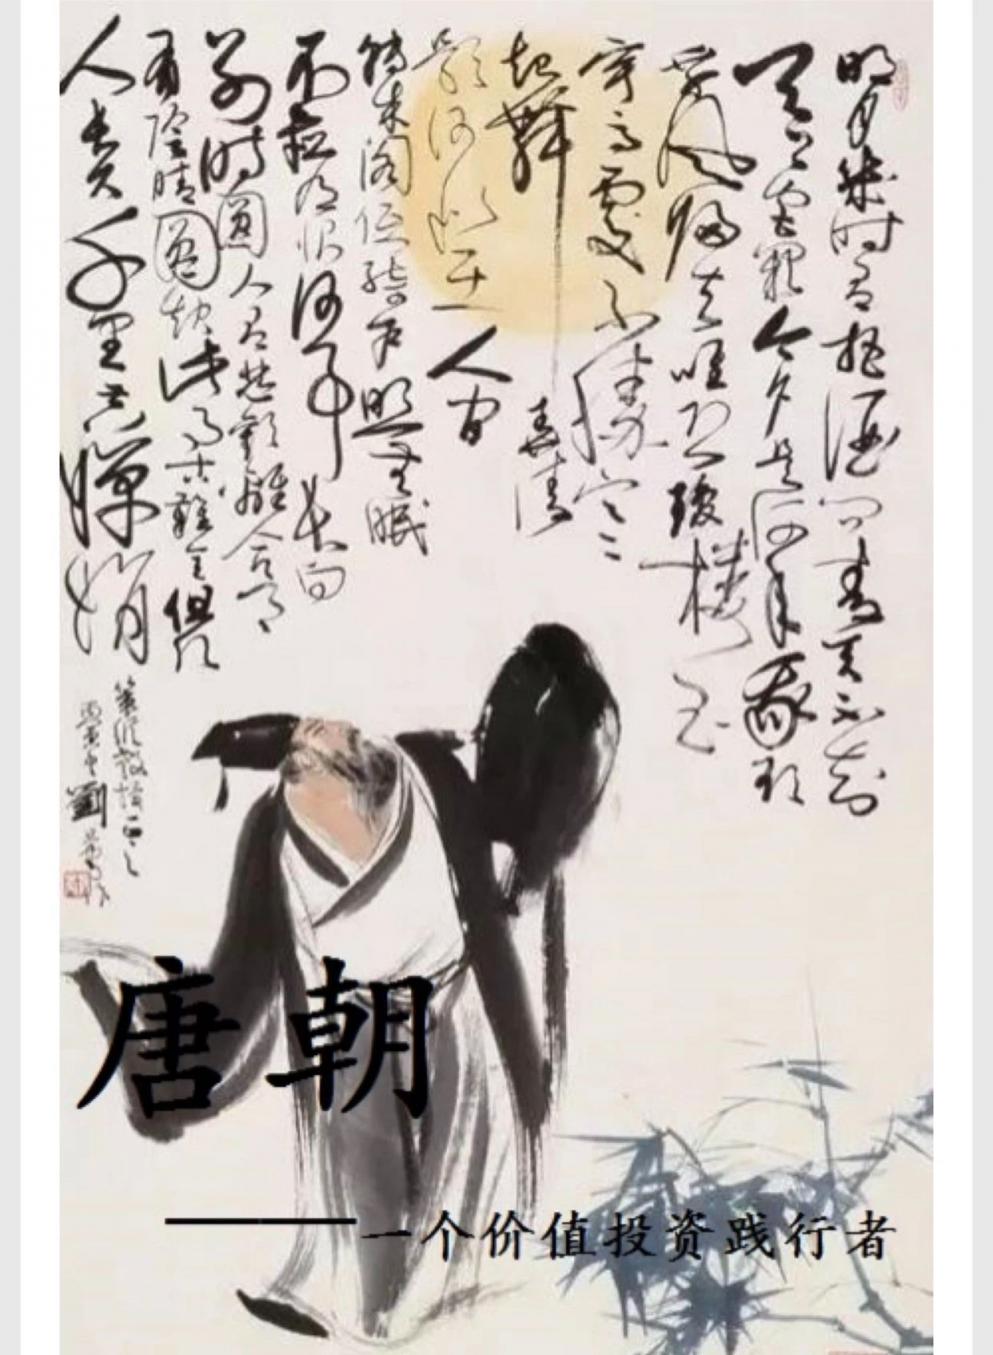 明月幾时有把酒问青天不知
天上宫阙今夕是何年我欲
乘风归去唯恐琼楼玉
宇高處不勝寒
起舞弄清
影何似在人间
转朱阁低绮户照无眠
不应有恨何事长向
别时圆人有悲歡離合月
有陰晴圆缺此事古難全但願
人長久千里共嬋娟
劉
唐朝
——一个价值投资践行者